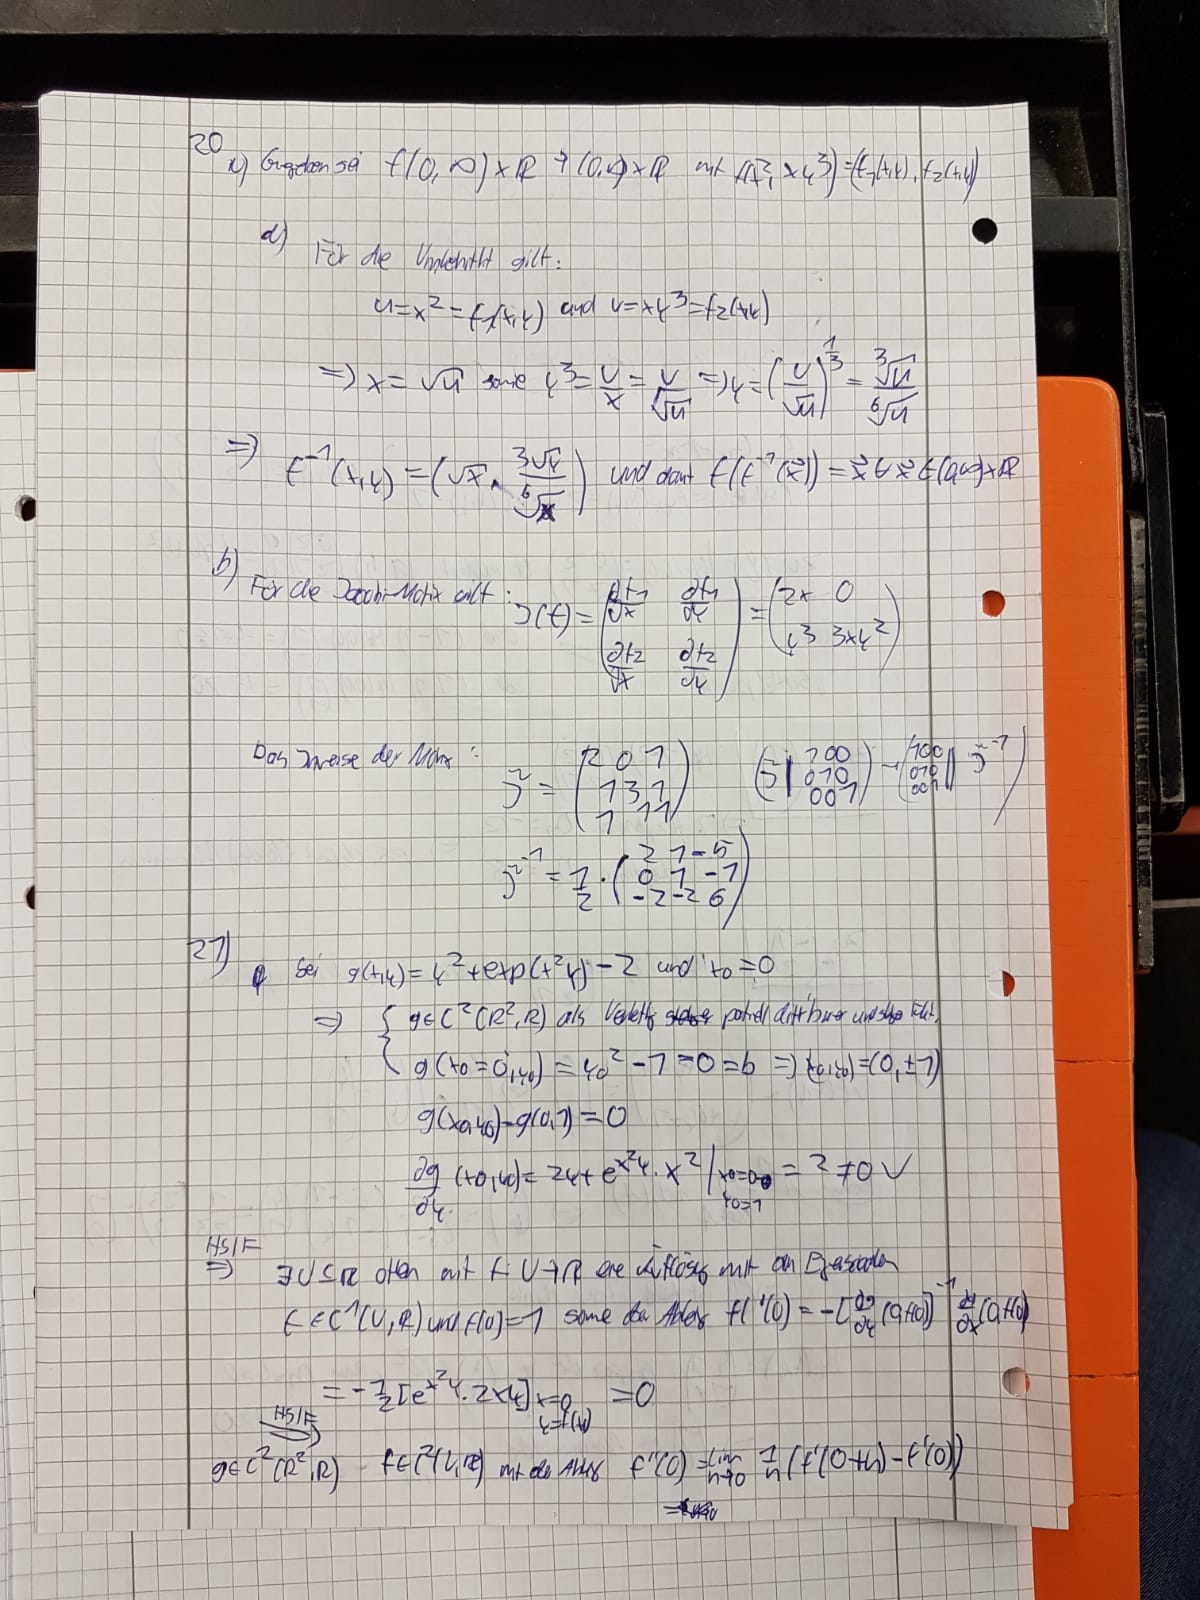 20
a) Gegeben sei f(0,∞)×ℝ → (0,∞)×ℝ mit f(x², xy³) = (f₁(x,y), f₂(x,y))
a)
Für die gilt:
u=x²=f₁(x,y) und v=xy³=f₂(x,y)
⇒ x=√u sowie y³ = v/x = v/√u ⇒ y = (v/√u)^(1/3) = ∛v / ⁶√u
⇒ f⁻¹(x,y) = (√x, ∛y / ⁶√x) und damit f(f⁻¹(x⃗)) = x⃗ ∀ x⃗ ∈ (0,∞)×ℝ
b)
Für die Jacobi-Matrix gilt: J(f) = (∂f₁/∂x ∂f₁/∂y ; ∂f₂/∂x ∂f₂/∂y) = (2x 0 ; y³ 3xy²)
Das Inverse der Matrix: J̃ = (2 0 1 ; 1 3 1 ; 1 1 1) (J̃ | 1 0 0 ; 0 1 0 ; 0 0 1) → (1 0 0 ; 0 1 0 ; 0 0 1 | J̃⁻¹)
J̃⁻¹ = 1/2 · (2 1 -5 ; 0 1 -1 ; -2 -2 6)
21)
Sei g(x,y) = y² + exp(x²y) - 2 und x₀=0
⇒ { g∈C²(ℝ²,ℝ) als partiell diffbarer
g(x₀=0,y₀) = y₀² - 1 = 0 = b ⇒ (x₀,y₀) = (0,±1)
g(x₀,y₀) = g(0,1) = 0
∂g/∂y (x₀,y₀) = 2y + e^(x²y) · x² | x₀=0 y₀=1 = 2 ≠ 0 ✓
HSIF
⇒ ∃ U⊆ℝ offen mit f: U→ℝ eine Auflösg mit den
f∈C¹(U,ℝ) und f(0)=1 sowie der Ableg f'(0) = -[∂g/∂y (0,f(0))]⁻¹ ∂g/∂x (0,f(0))
= -1/2 [e^(x²y) · 2xy] x=0 y=f(x) = 0
HSIF
g∈C²(ℝ²,ℝ) ⇒ f∈C²(U,ℝ) mit der Ableg f''(0) = lim h→0 1/h (f'(0+h) - f'(0))